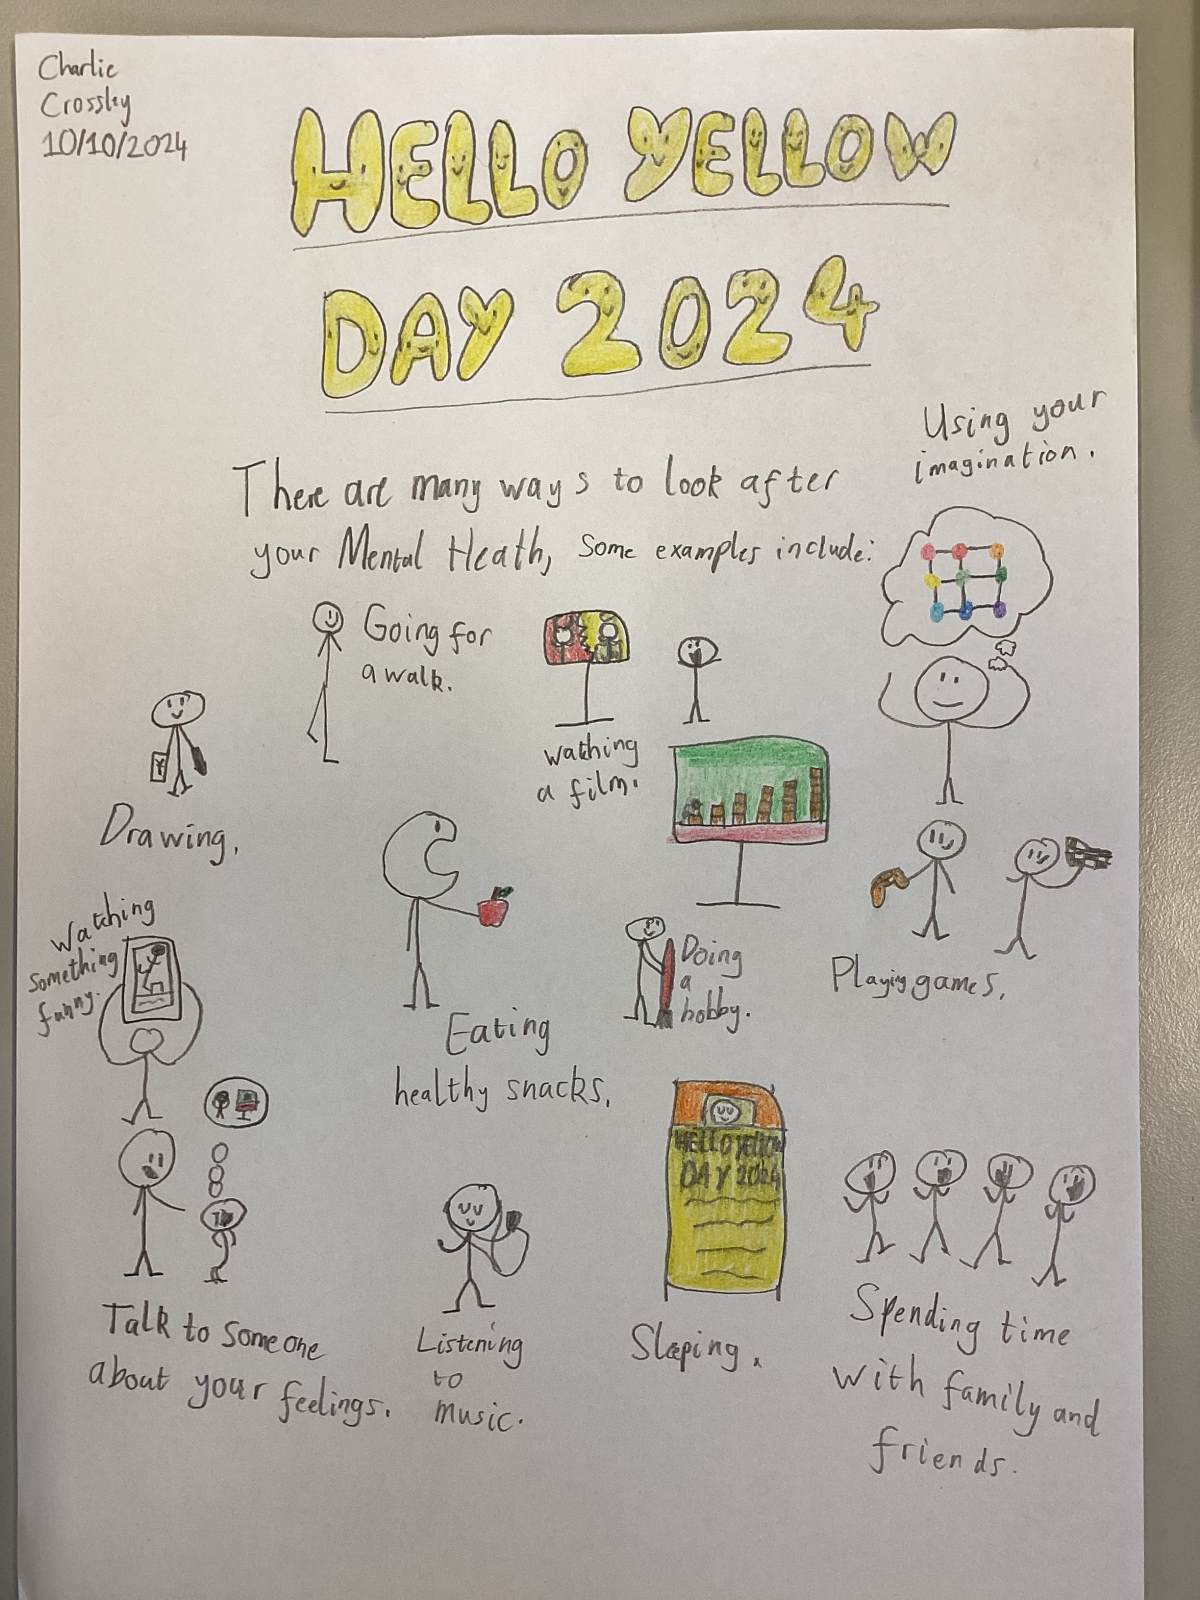 Charlie
Crossley
10/10/2024
HELLO YELLOW
DAY 2024
There are many ways to look after
your Mental Heath, Some examples include:
Using your
imagination.
Going for
a walk.
watching
a film.
Drawing.
watching
something
funny.
Eating
healthy snacks.
Doing
a
hobby.
Playing games.
HELLO YELLOW
DAY 2024
Talk to someone
about your feelings.
Listening
to
music.
Sleeping.
Spending time
with family and
friends.